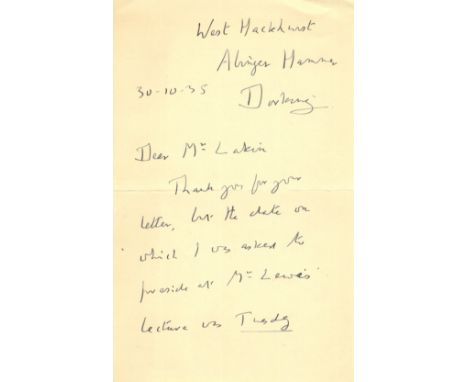 West Hackhurst
Abinger Hammer
30-10-35 Dorking.
Dear Mr Lakin
Thank you for your
letter, but the date on
which I was asked to
preside at Mr Lewis'
lecture was Tuesday